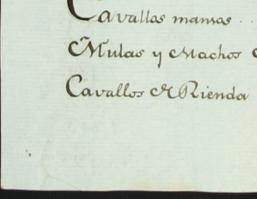 Cavallos mansos . .
Mulas y Machos
Cavallos de Rienda